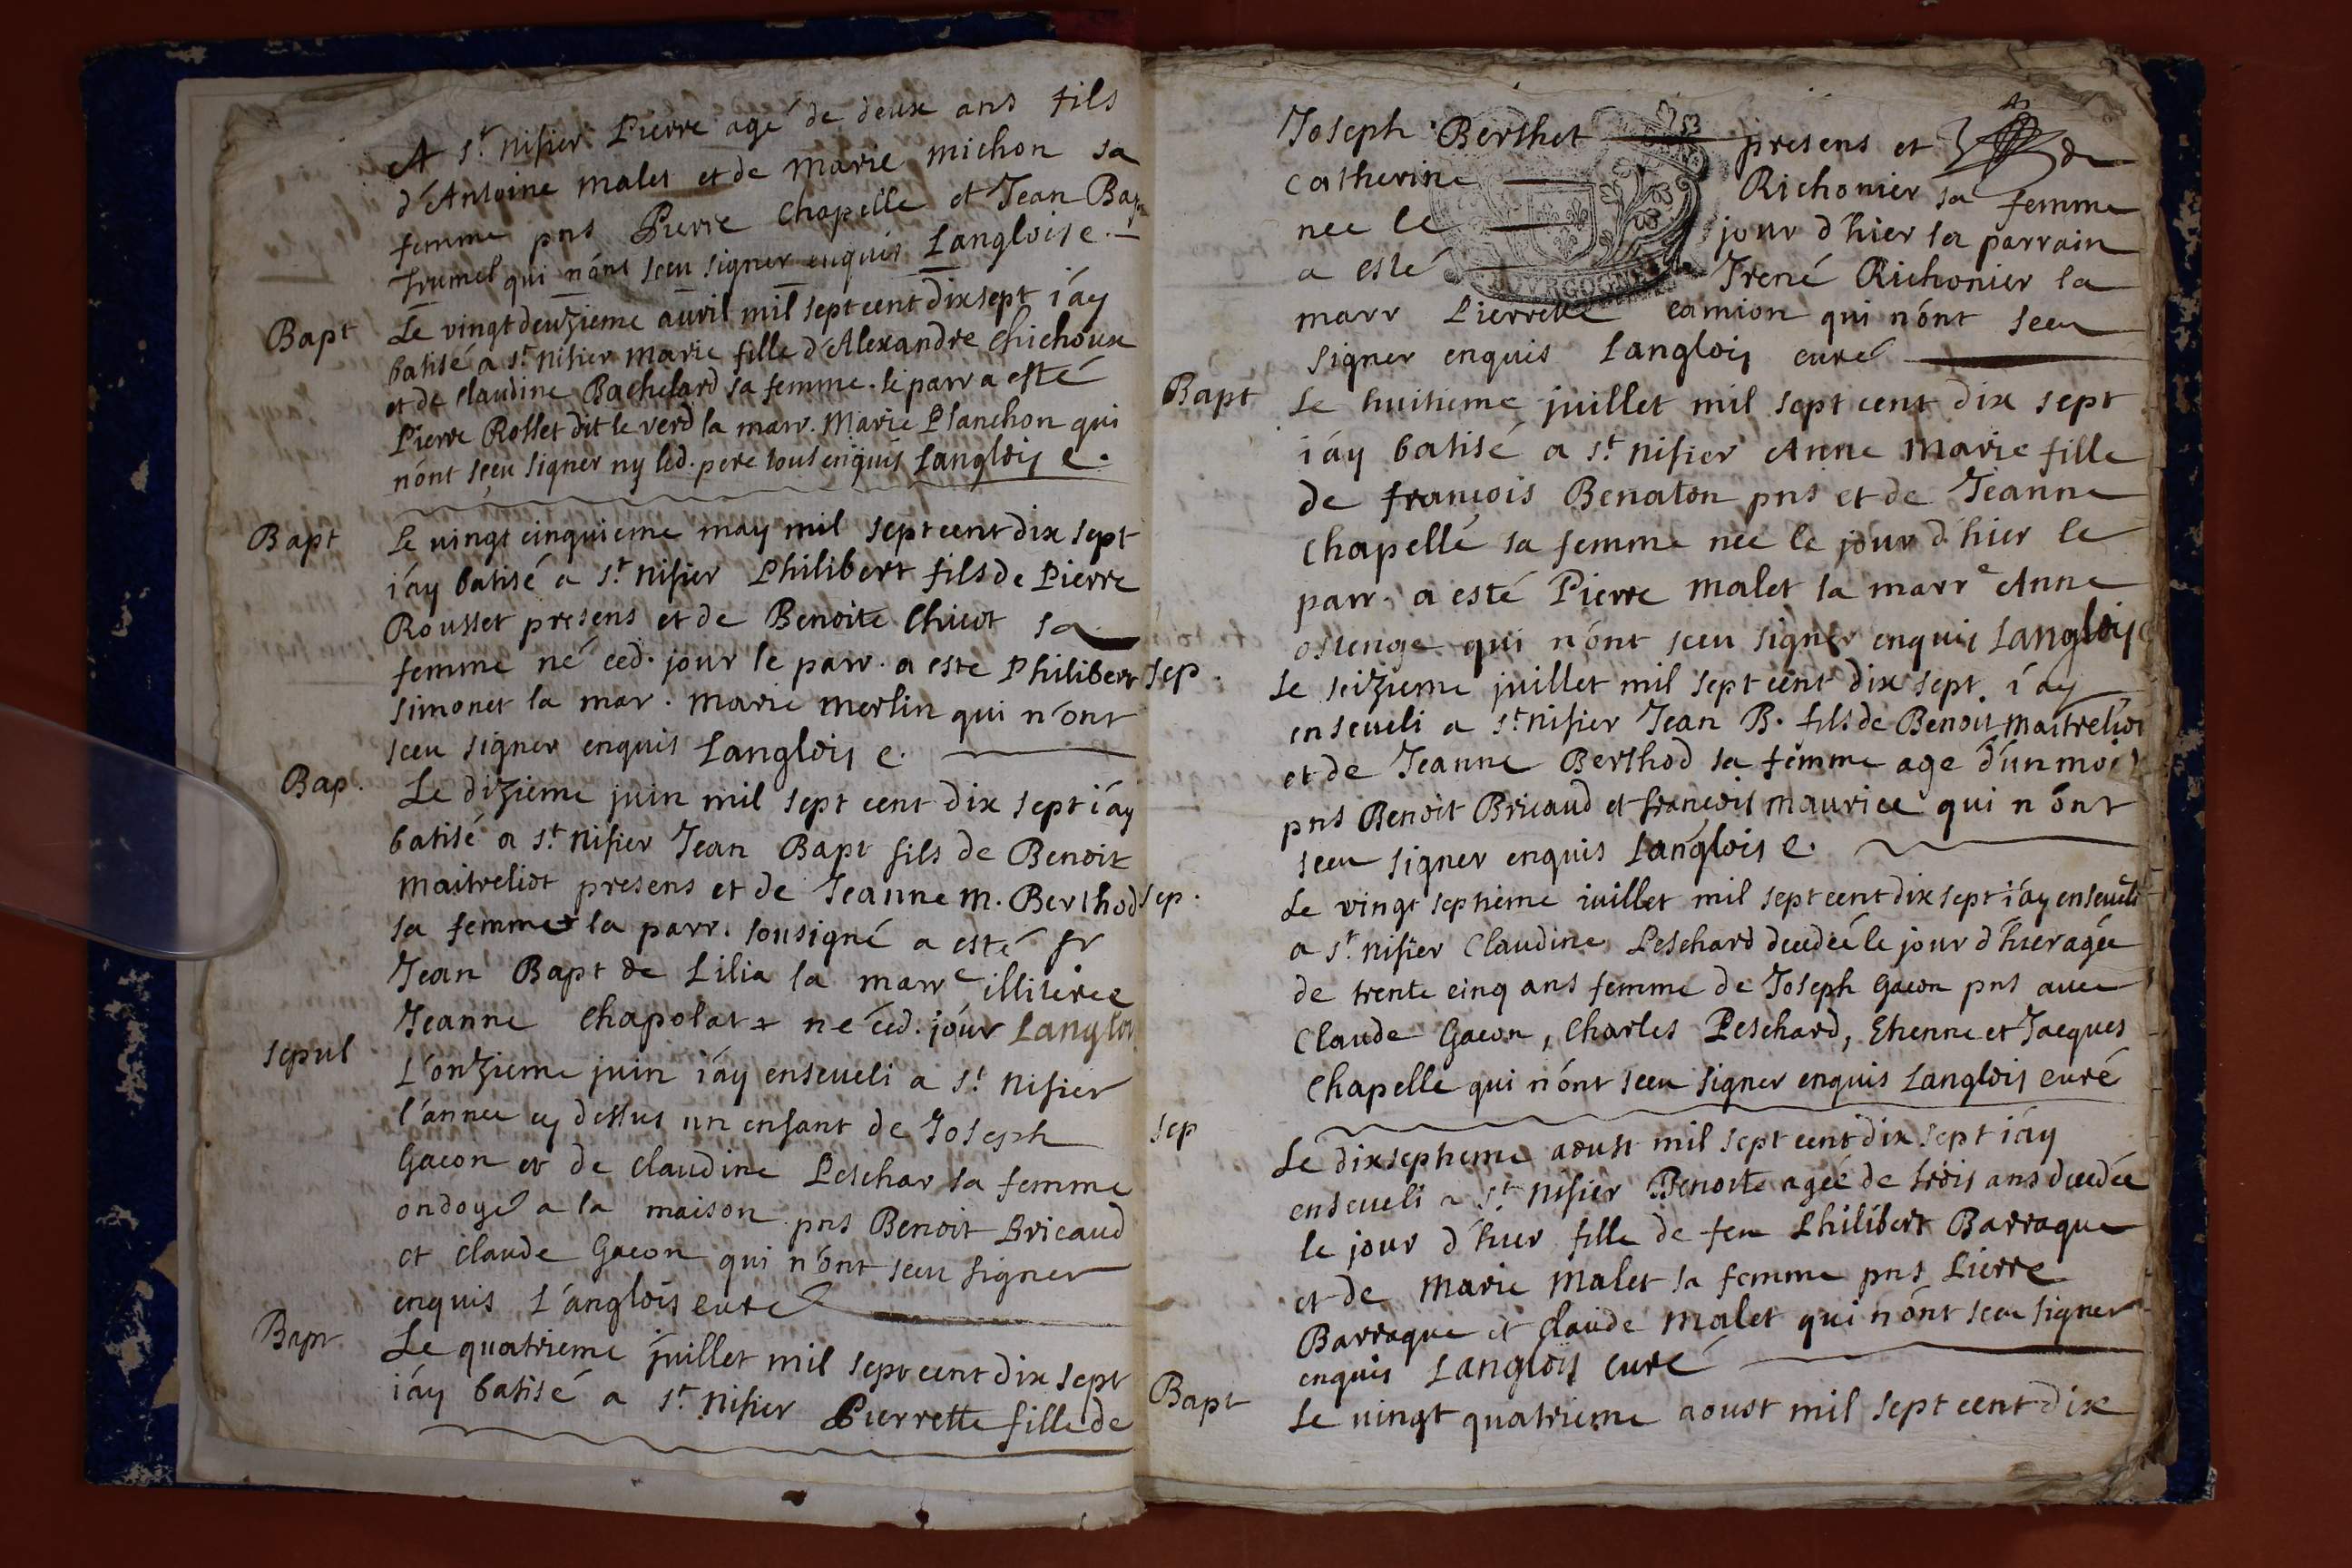 A S.t Nisier Pierre agé de deux ans fils
d'Antoine malet et de marie michon sa
femme pns Pierre Chapelle et Jean Bap
trumel qui n'ont sceu signer enquis Langlois c.
Bapt
Le vingt deuzieme auril mil sept cent dix sept i'ay
batisé a s.t nisier marie fille d'Alexandre Chichoux
et de Claudine Bachelard sa femme. le parr a esté
Pierre Rosset dit le verd la marr. Marie Planchon qui
n'ont sceu signer ny led. pere tous enquis Langlois c.
Bapt
Le vingt cinquieme may mil sept cent dix sept
i'ay batisé a s.t nisier Philibert fils de Pierre
Rousset presens et de Benoite Chicot sa
femme né ced. jour le parr. a esté Philibert
simonet la mar. marie merlin qui n'ont
sceu signer enquis Langlois c.
Bap.
Le dizieme juin mil sept cent dix sept i'ay
batisé a s.t nisier Jean Bapt fils de Benoit
maitreliot presens et de Jeanne m. Berthod
sa femme + la parr. sousigné a esté fr
Jean Bapt de Lilia la marr e illiterée
Jeanne Chapolat + né ced. jour Langloi
sepul
L'onzieme juin i'ay enseueli a s.t Nisier
l'année cy dessus un enfant de Joseph
Gacon et de Claudine Peschar sa femme
ondoyé a la maison pns Benoit Bricaud
et Claude Gacon qui n'ont sceu signer
enquis L'anglois curé
Bapt
Le quatrieme juillet mil sept cent dix sept
i'ay batisé a s.t Nisier Pierrette fille de
Joseph Berthet presens et de
Catherine Richonier sa femme
née le jour d'hier sa parrain
a esté Irené Richonier la
marr Pierrette camion qui n'ont sceu
signer enquis Langlois curé
BOURGOGNE
Bapt
Le huitieme juillet mil sept cent dix sept
i'ay batisé a s.t nisier Anne Marie fille
de françois Benaton pns et de Jeanne
Chapelle sa femme née le jour d'hier le
parr. a esté Pierre malet la marr e Anne
ostenge qui n'ont sceu signer enquis Langlois c
sep.
Le seizieme juillet mil sept cent dix sept i'ay
enseueli a s.t nisier Jean B. fils de Benoit maitreliot
et de Jeanne Berthod sa femme agé d'un mois
pns Benoit Bricaud et françois maurice qui n'ont
sceu signer enquis Langlois c.
sep.
Le vingt septieme iuillet mil sept cent dix sept i'ay enseueli
a s.t nisier Claudine Peschard decedée le jour d'hier agée
de trente cinq ans femme de Joseph Gacon pns auec
Claude Gacon, Charles Peschard, Etienne et Jacques
Chapelle qui n'ont sceu signer enquis Langlois curé
sep
Le dixseptieme aoust mil sept cent dix sept i'ay
enseueli a s.t nisier Benoite agée de trois ans decedée
le jour d'hier fille de feu Philibert Barraque
et de Marie Malet sa femme pns Pierre
Barraque et Claude Malet qui n'ont sceu signer
enquis Langlois curé
Bapt
Le uingt quatrieme aoust mil sept cent dix